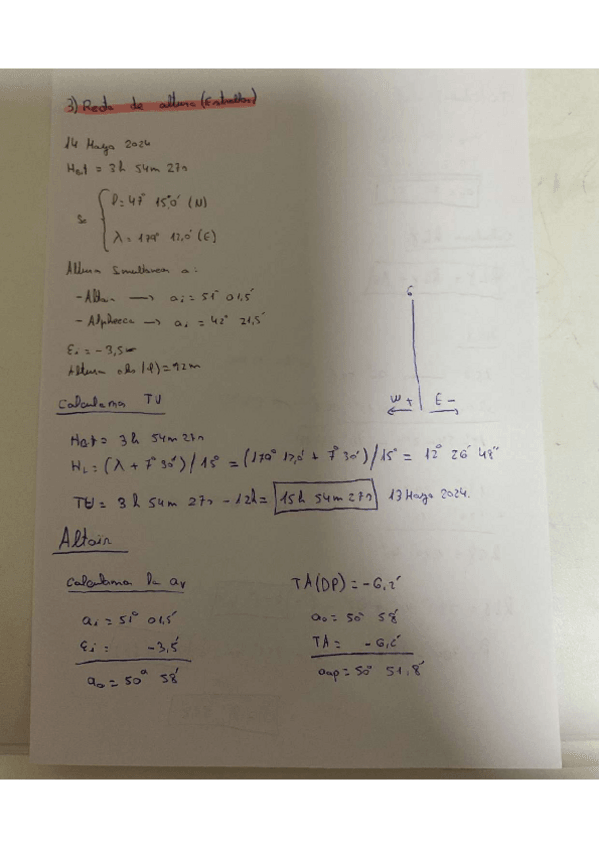 3) Recta de altura (Estrellas)
14 Mayo 2024
H&t = 3h 54m 27s
Se { l = 47° 15,0' (N)
λ = 179° 17,0' (E)
Altura simultanea a:
- Altair → ai = 51° 01,5'
- Alphecca → ai = 42° 21,5'
Ei = -3,5
Altura obs (A) = 12m
G
W + E -
Calculamos TU
H&t = 3h 54m 27s
HL = (λ + 7° 30') / 15° = (179° 17,0' + 7° 30') / 15° = 12° 26' 48"
TU = 3h 54m 27s - 12h = 15h 54m 27s 13 Mayo 2024.
Altair
Calculamos la av
ai = 51° 01,5'
Ei = -3,5'
ao = 50° 58'
TA (DP) = -6,2'
ao = 50° 58'
TA = -6,2'
aap = 50° 51,8'